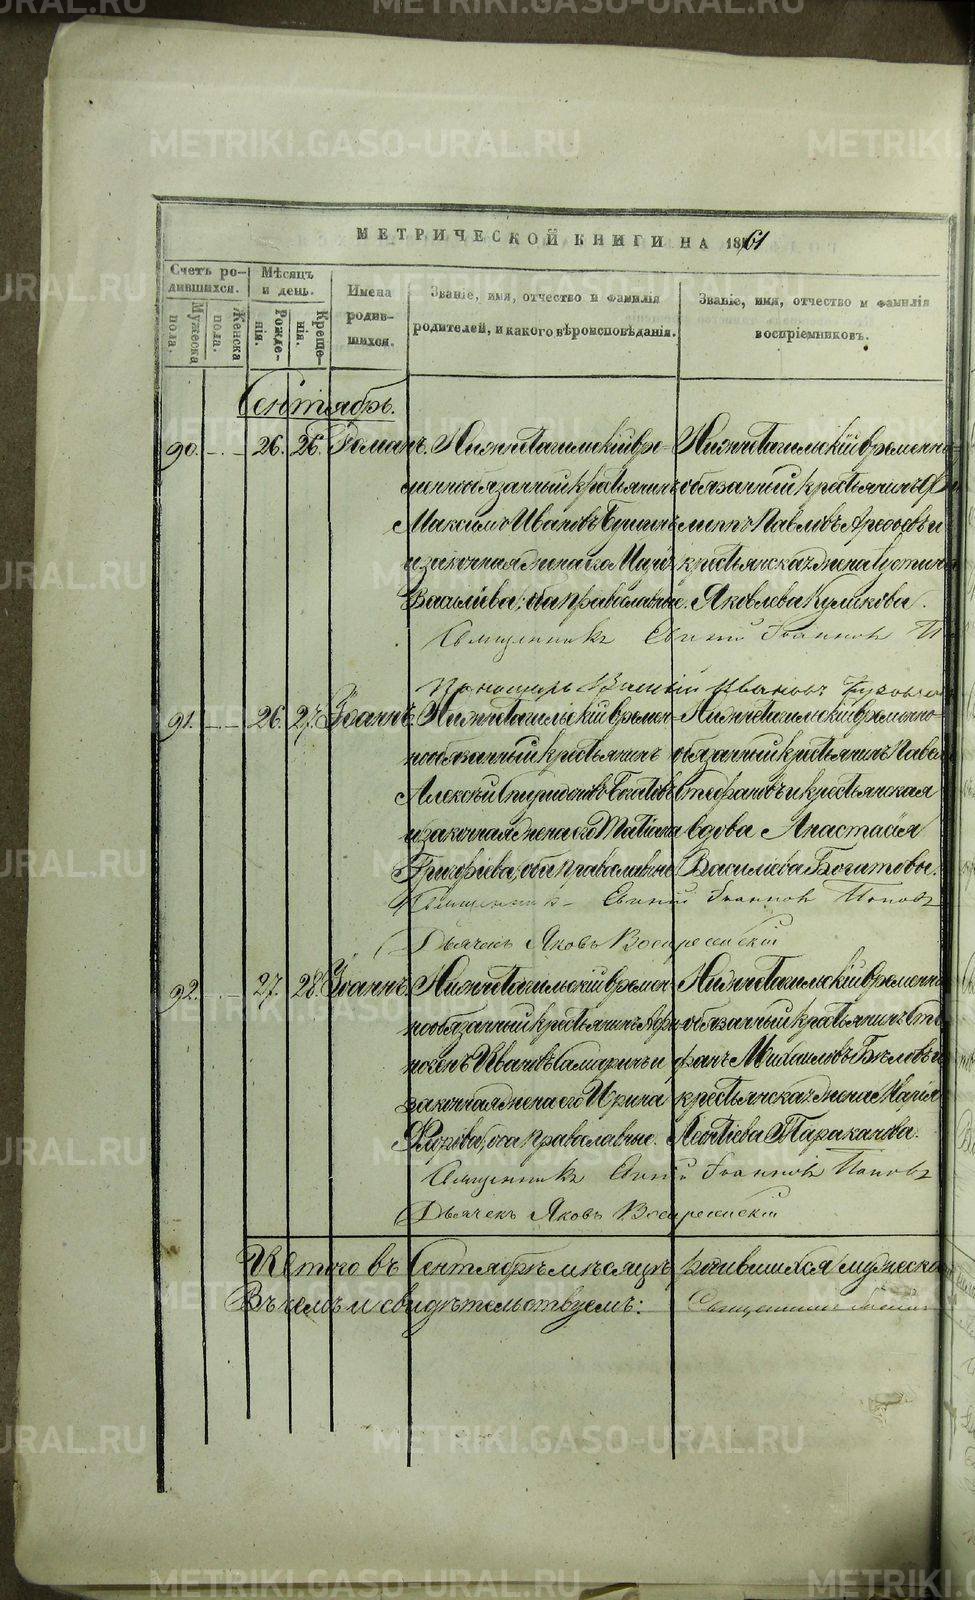 МЕТРИЧЕСКОЙ КНИГИ НА 1861
Счетъ родившихся.
Мужеска пола.
Женска пола.
Мѣсяцъ и день.
Рожденія.
Крещенія.
Имена родившихся.
Званіе, имя, отчество и фамилія родителей, и какого вѣроисповѣданія.
Званіе, имя, отчество и фамилія воспріемниковъ.
Сентябрь.
90. 26. 26. Романъ.
Нижнетагильскій вре-
меннообязанный крестьянинъ
Максимъ Ивановъ
и законная жена его Марія
Васильева, оба православные.
Нижнетагильскій временно-
обязанный крестьянинъ Фи
липпъ Павловъ Арефьевъ и
крестьянская жена Іустина
Яковлева Куликова.
Священникъ Евгеній Іоанновъ
Пономарь Василій Ивановъ
91. 26. 27. Іоаннъ
Нижнетагильскій времен-
нообязанный крестьянинъ
Алексѣй Спиридоновъ Богатовъ
и законная жена его Татіана
Григорьева, оба православные
Нижнетагильскій временно-
обязанный крестьянинъ Павелъ
Стефановъ и крестьянская
вдова Анастасія
Васильева Богатовы.
Священникъ Евгеній Іоанновъ Поповъ
Дьячекъ Яковъ Воскресенскій
92. 27. 28. Іоаннъ.
Нижнетагильскій времен-
нообязанный крестьянинъ
Ивановъ Самаринъ и
законная жена его Ирина
оба православные.
Нижнетагильскій временно
обязанный крестьянинъ Сте
фанъ Михайловъ Бѣловъ и
крестьянская жена
Леонтіева Тараканова.
Священникъ Евгеній Іоанновъ Поповъ
Дьячекъ Яковъ Воскресенскій
Итого въ Сентябрѣ мѣсяцѣ родившихся мужеска
Въ чемъ и свидѣтельствуемъ: Священникъ
METRIKI.GASO-URAL.RU